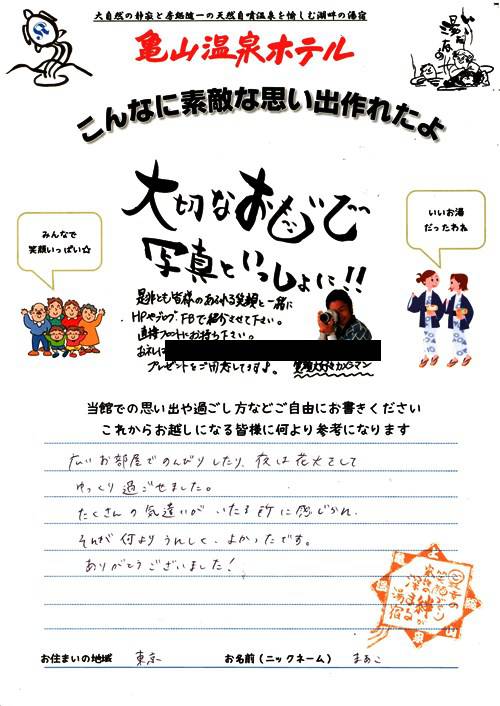 大自然の静寂と房総随一の天然自噴温泉を愉しむ湖畔の湯宿
亀山温泉ホテル
こんなに素敵な思い出作れたよ
大切なおもいで
写真といっしょに!!
みんなで
笑顔いっぱい☆
いいお湯
だったわね
是非とも皆様のあふれる笑顔と一緒に
HPやブログ、FBで紹介させて下さい。
直接フロントにお持ち下さい。
お礼に
プレゼントをご用意してます♪。
当館での思い出や過ごし方などご自由にお書きください
これからお越しになる皆様に何より参考になります
広いお部屋でのんびりしたり、夜は花火をして
ゆっくり過ごせました。
たくさんの気遣いがいたる所に感じられ、
それが何よりうれしく、よかったです。
ありがとうございました!
お住まいの地域 東京
お名前(ニックネーム) まあこ